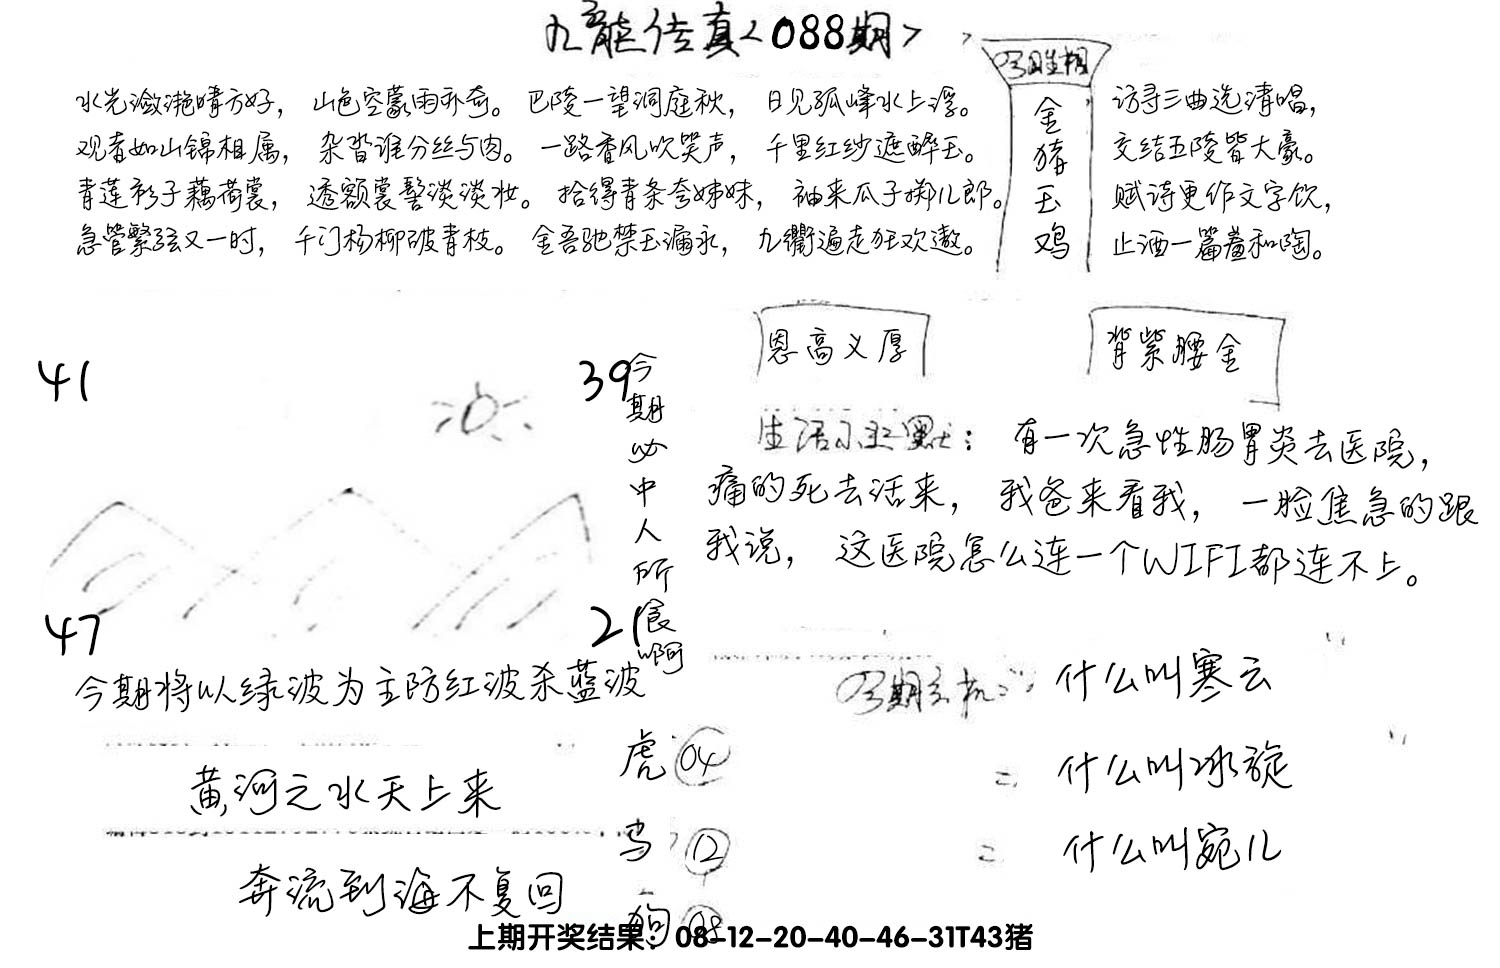 九龙传真<088期>
水光潋滟晴方好，山色空蒙雨亦奇。巴陵一望洞庭秋，日见孤峰水上浮。
观者如山锦相属，杂沓谁分丝与肉。一路香风吹笑声，千里红纱遮醉玉。
青莲衫子藕荷裳，透额裳髻淡淡妆。拾得青条夸姊妹，袖来瓜子掷儿郎。
急管繁弦又一时，千门杨柳破青枝。金吾弛禁玉漏永，九衢遍走狂欢遨。
今日生相
金
猪
玉
鸡
访寻三曲选清唱，
交结五陵皆大豪。
赋诗更作文字饮，
止酒一篇羞和陶。
41
39
47
21
今
期
必
中
人
所
食
啊
今期将以绿波为主防红波杀蓝波
黄河之水天上来
奔流到海不复回
虎 04
12
狗 08
恩高义厚
背紫腰金
生活小幽默：有一次急性肠胃炎去医院，
痛的死去活来，我爸来看我，一脸焦急的跟
我说，这医院怎么连一个WIFI都连不上。
今期玄机：什么叫寒云
二 什么叫冰旋
二 什么叫宛儿
上期开奖结果：08-12-20-40-46-31T43猪